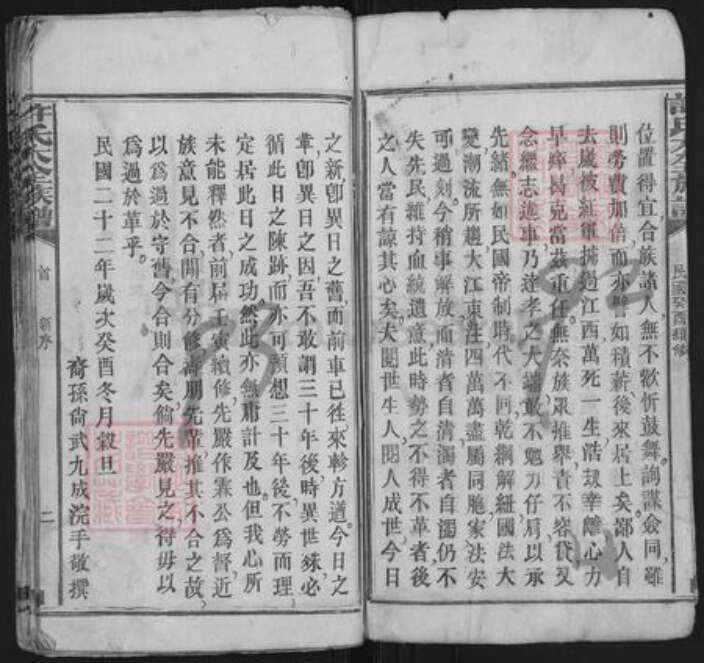 位置得宜合族諸人無不歡忻鼓舞詢謀僉同雖
則勞費加倍而亦譬如積薪後來居上矣鄙人自
去歲被紅軍擄過江西萬死一生浩刼幸離心力
早瘁曷克當茲重任無奈族眾推舉責不容貸又
念繼志述事乃達孝之大端敢不勉力仔肩以承
先緒無如民國帝制時代不同乾綱解紐國法大
變潮流所趨大江東注四萬萬盡屬同胞家法安
可過刻今稍事解放而清者自清濁者自濁仍不
失先民維持血統遺意此時勢之不得不革者後
之人當有諒其心矣夫閱世生人閱人成世今日
民國癸酉續修
之新卽異日之舊而前車已徃來軫方遒今日之
革卽異日之因吾不敢謂三十年後時異世殊必
循此日之陳跡而亦可預想三十年後不勞而理
定居此日之成功然此亦無庸計及也但我心所
未能釋然者前屆壬寅續修先嚴作霖公爲督近
族意見不合鬧有分修房朋先輩推其不合之故
以爲過於守舊今合則合矣倘先嚴見之得毋以
爲過於革乎
民國二十二年歲次癸酉冬月穀旦
裔孫尙武九成浣手敬撰
許氏大全族譜
首
新序
二